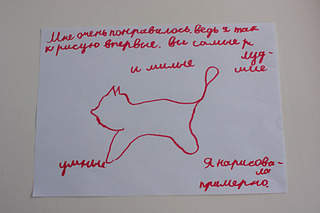 Мне очень понравилось, ведь я так
рисую впервые. Вы самые
и милые
умные
Я нарисова-
ла
примерно.